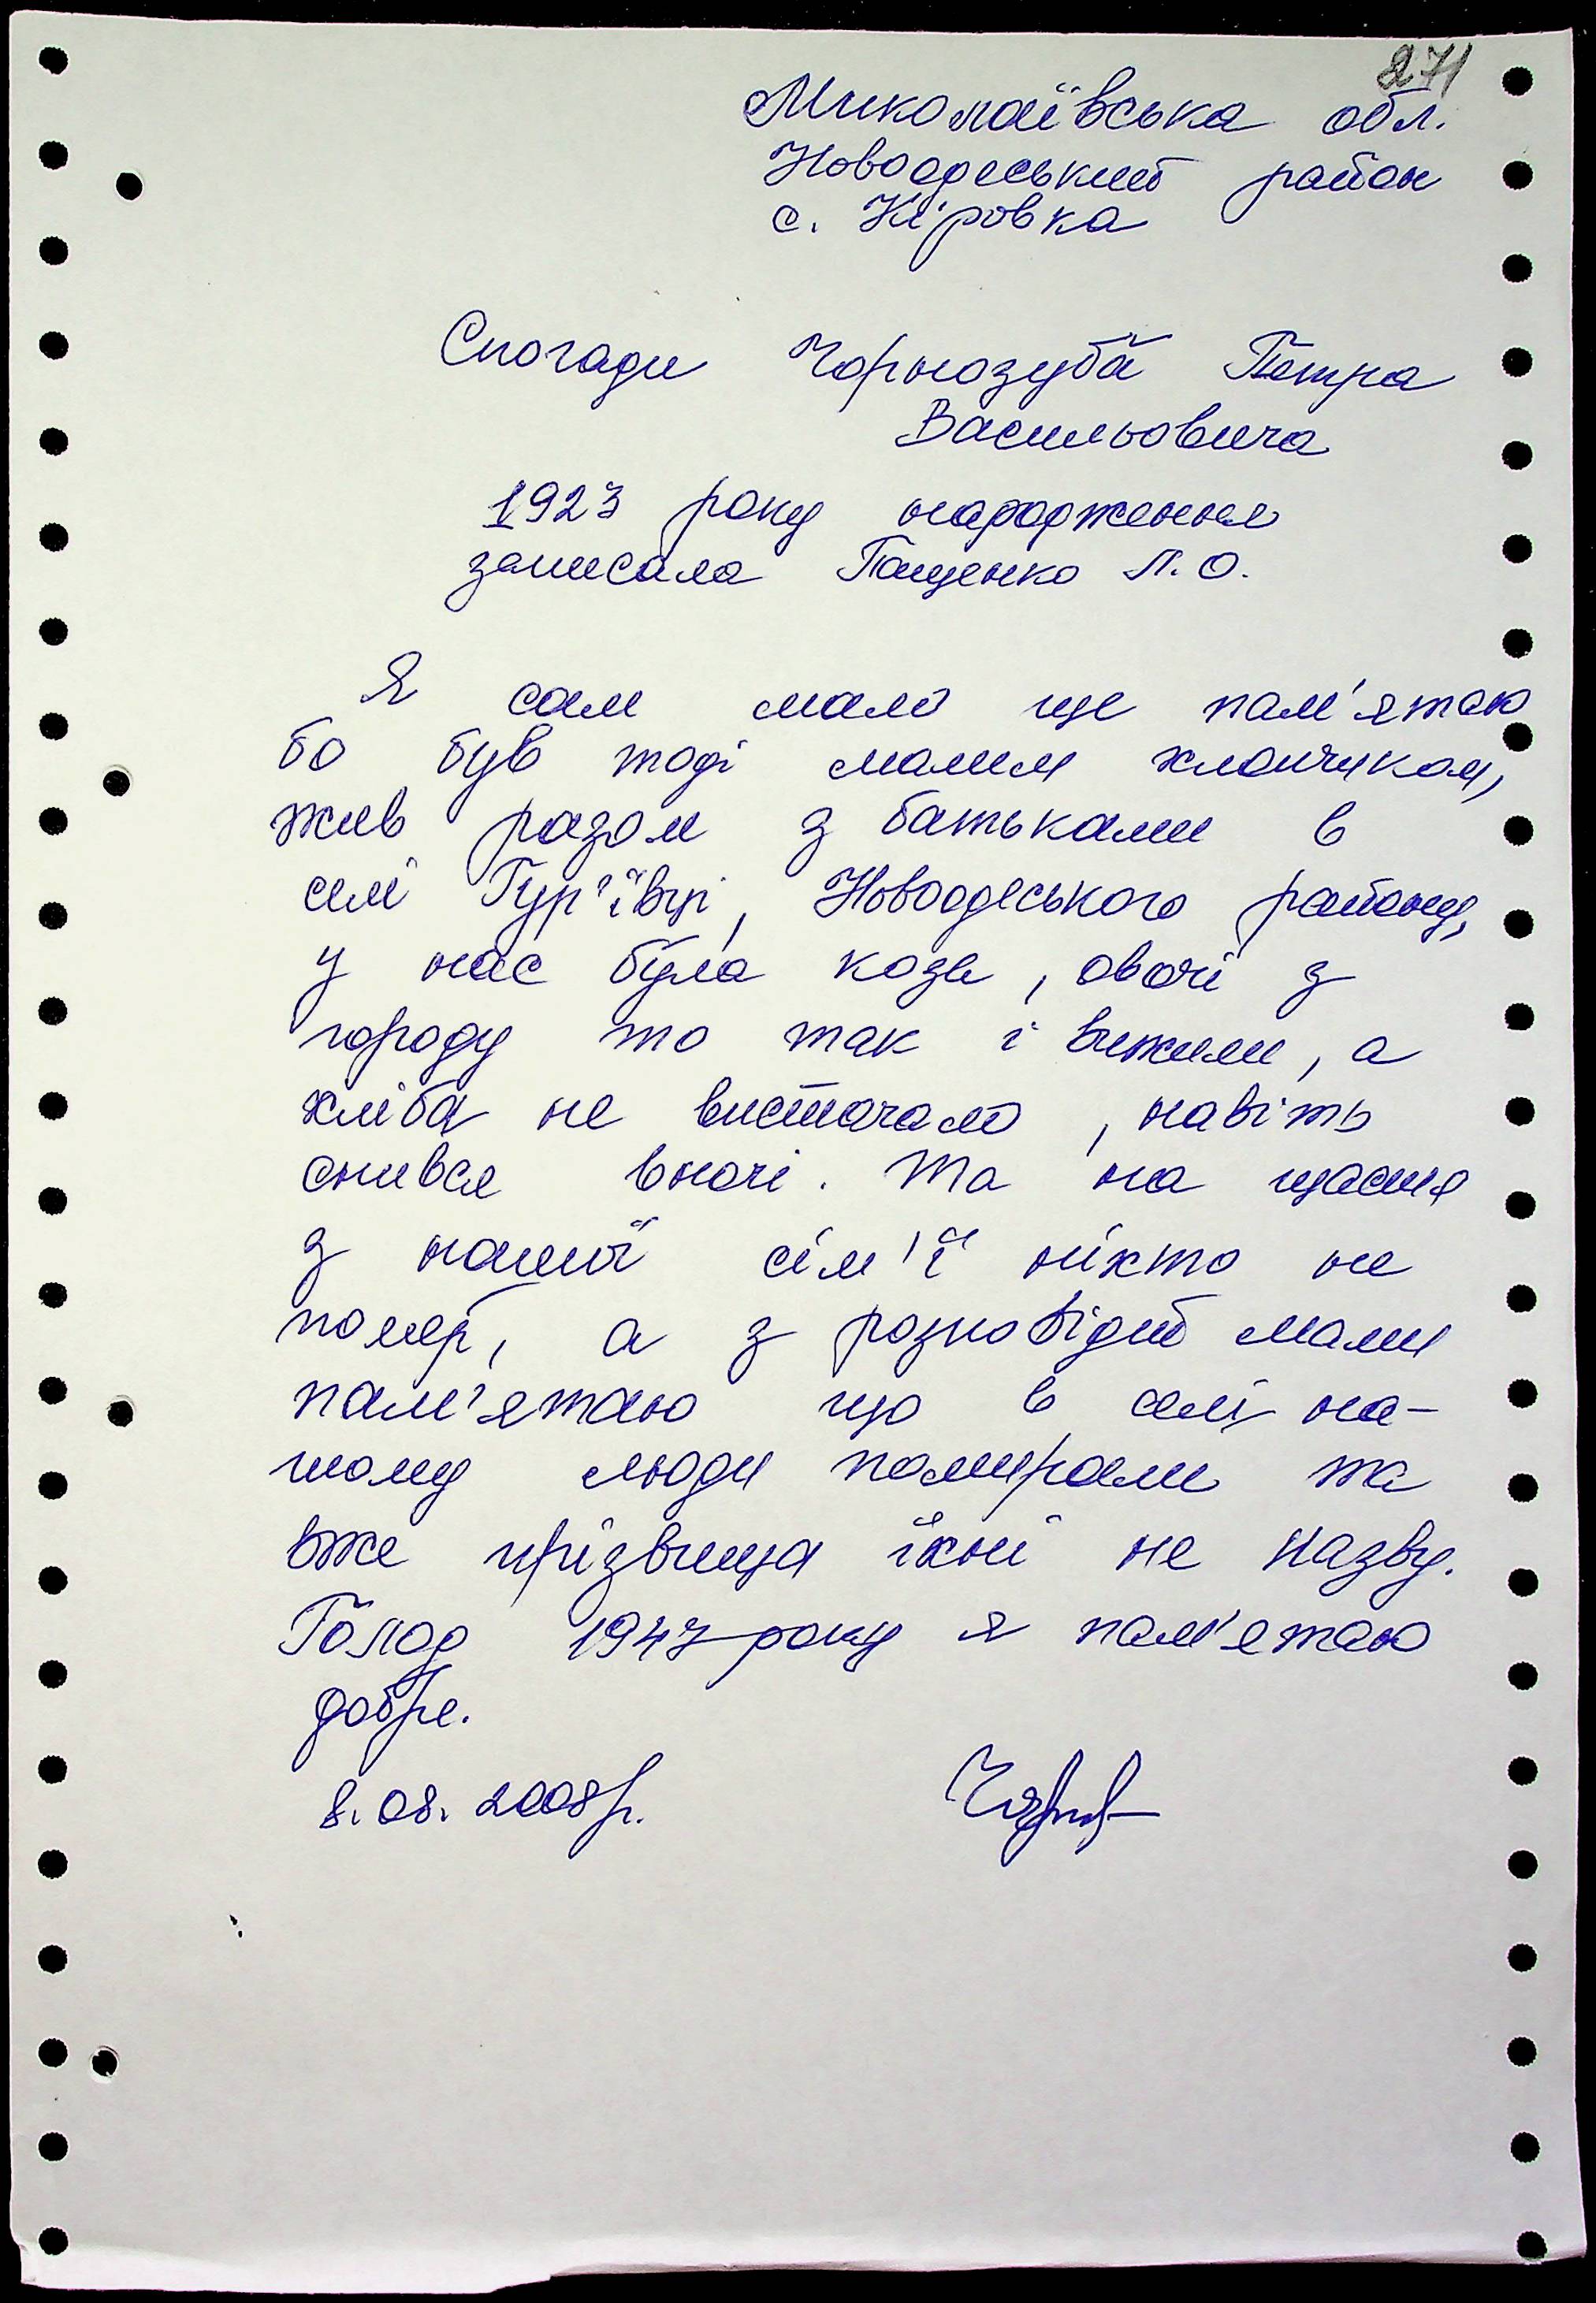 271
Миколаївська обл.
Новоодеський район
с. Кіровка
Спогади Чорнозуба Петра
Васильовича
1923 року народження
записала Пащенко Л.О.
Я сам мало ще пам'ятаю
бо був тоді малим хлопчиком,
жив разом з батьками в
селі Гур'ївці, Новоодеського району,
у нас була коза, овочі з
городу то так і вижили, а
хліба не вистачало, навіть
снився вночі. Та на щастя
з нашої сім'ї ніхто не
помер, а з розповідий мами
пам'ятаю що в селі на-
шому люди помирали та
вже прізвища їхні не назву.
Голод 1947 року я пам'ятаю
добре.
8.08.2008р.